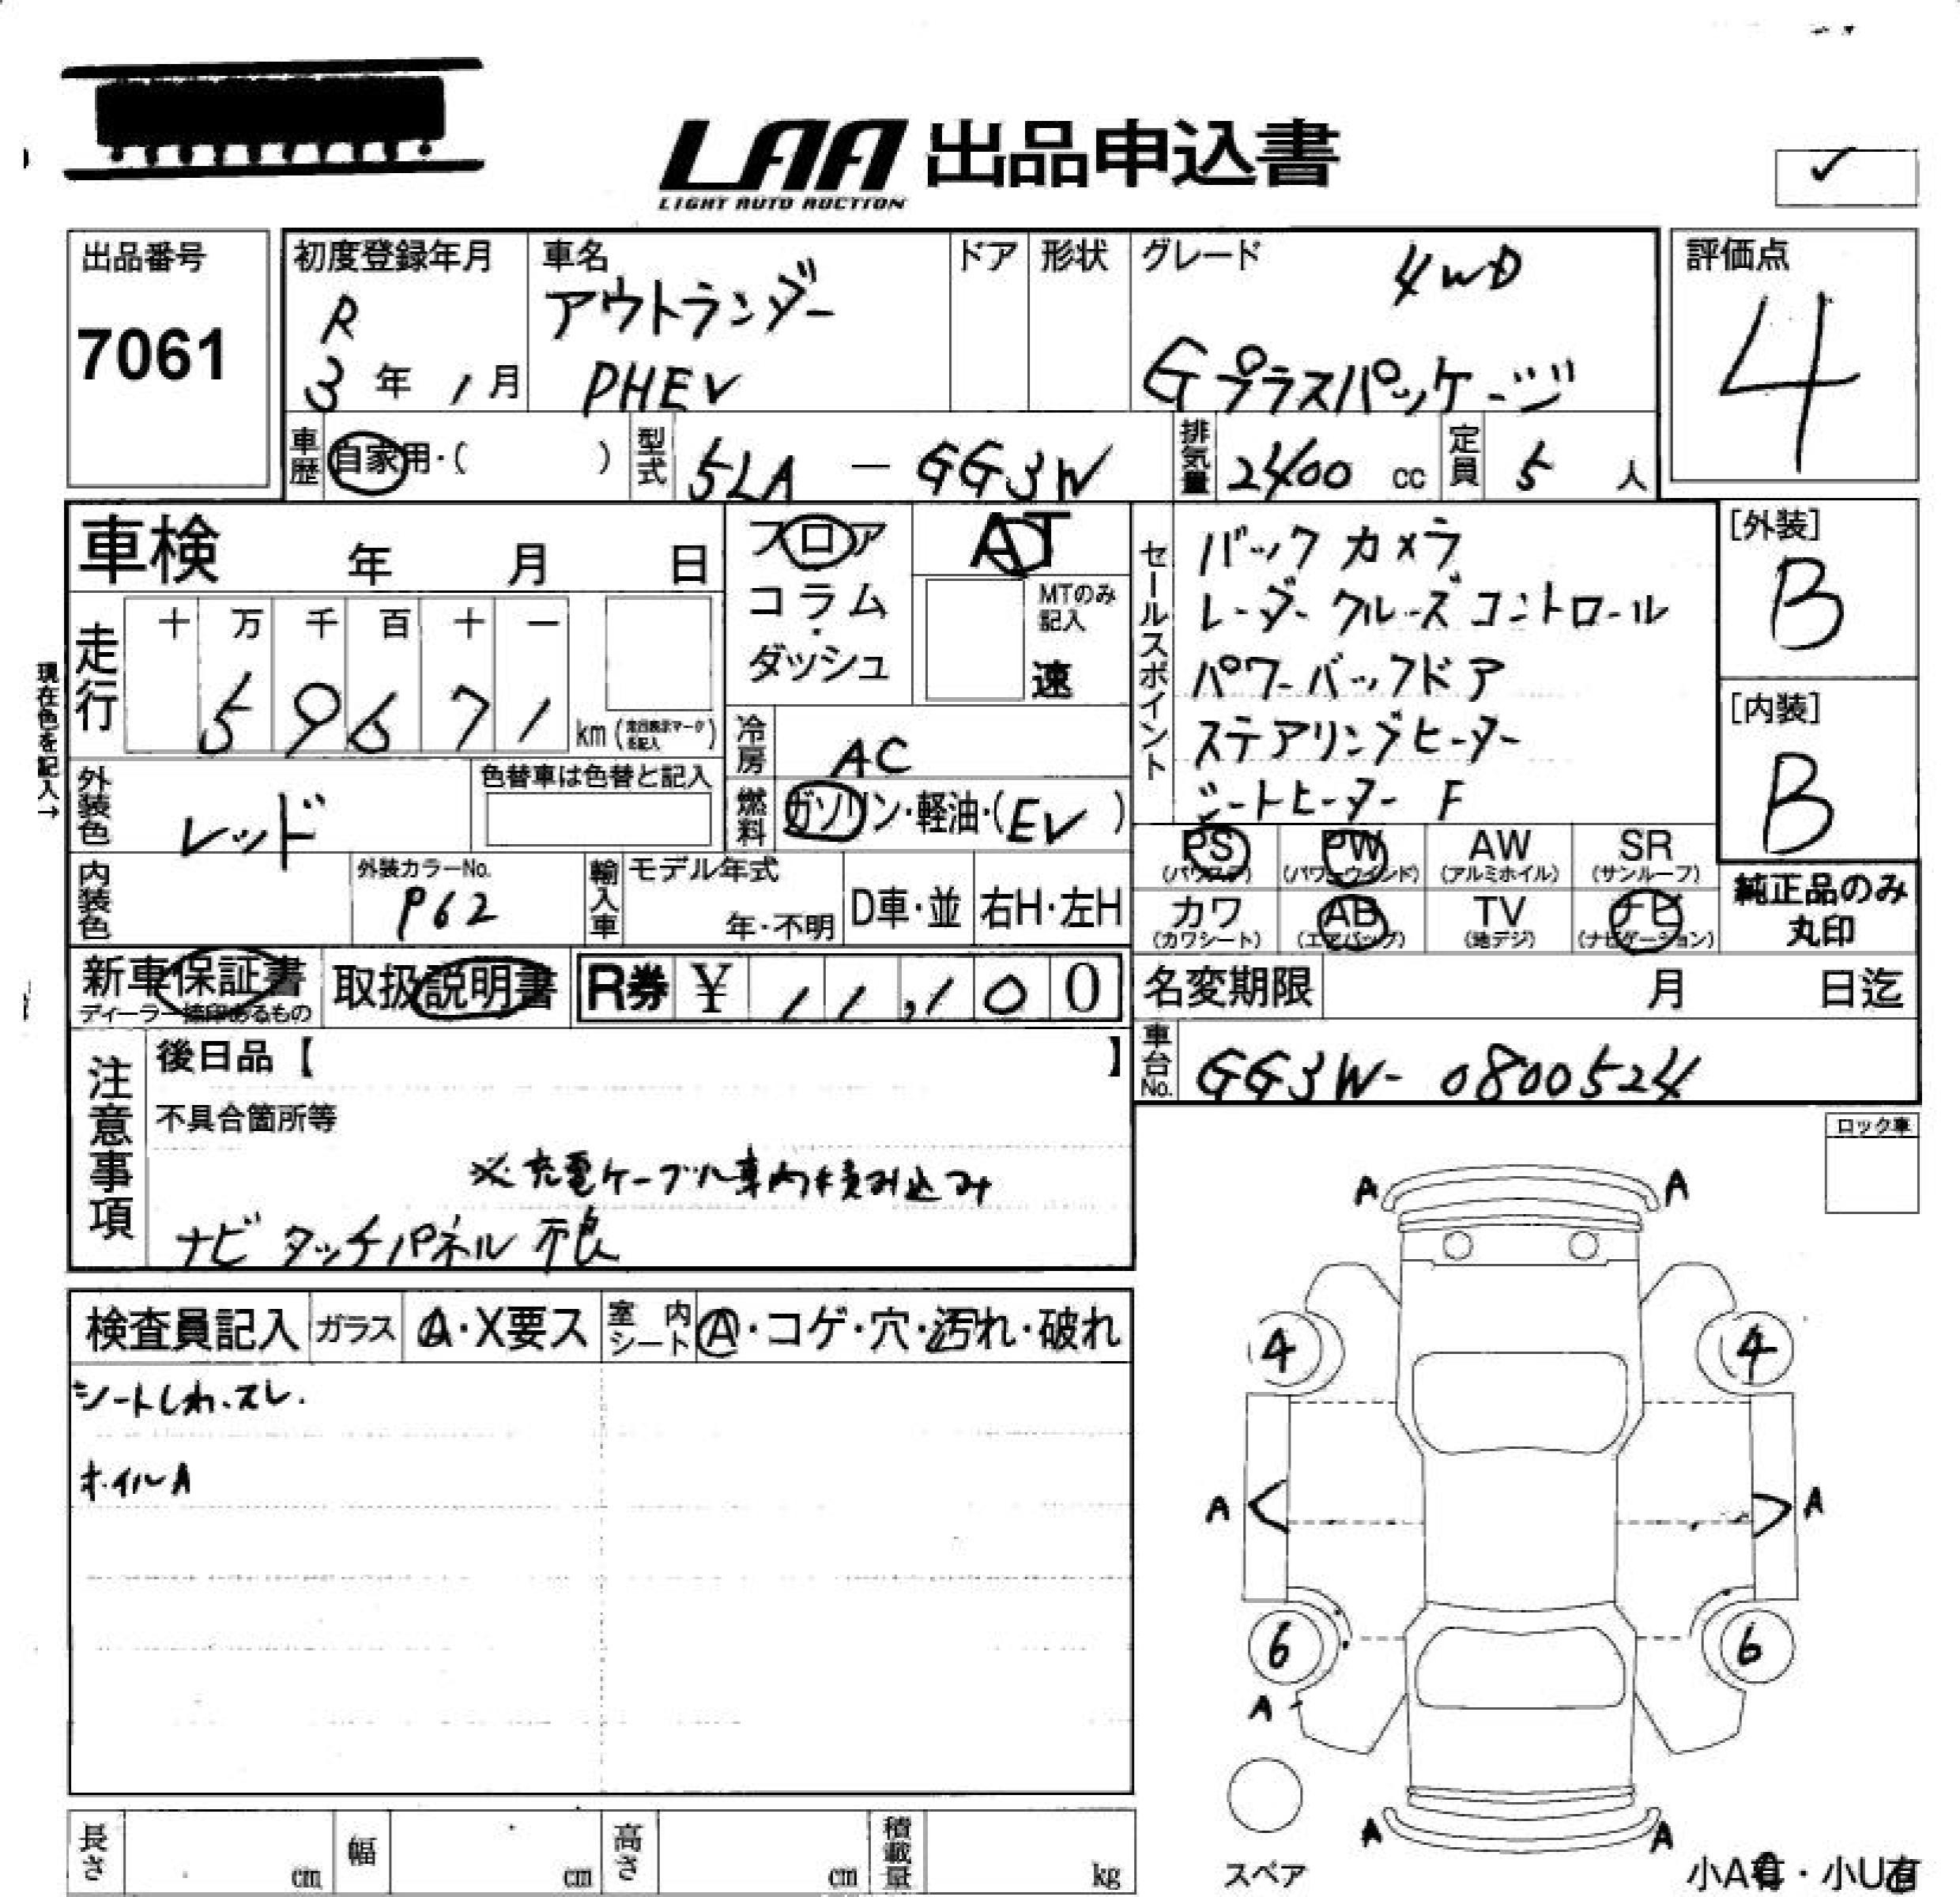 LAA 出品申込書
LIGHT AUTO AUCTION
✓
出品番号
7061
初度登録年月
R
3年1月
車名
アウトランダー
PHEV
ドア
形状
グレード
4WD
Gプラスパッケージ
評価点
4
車歴
自家用・( )
型式
5LA - GG3W
排気量
2400 cc
定員
5 人
車検 年 月 日
フロア
コラム
・
ダッシュ
AT
MTのみ
記入
速
セールスポイント
バックカメラ
レーダークルーズコントロール
パワーバックドア
ステアリングヒーター
シートヒーター F
[外装]
B
[内装]
B
現在色を記入→
走行
十 万 千 百 十 一
5 9 6 7 1
km
冷房
AC
燃料
ガソリン・軽油・(EV)
外装色
レッド
色替車は色替と記入
内装色
外装カラーNo.
P62
輸入車
モデル年式
年・不明
D車・並
右H・左H
PS
(パワステ)
PW
(パワーウインド)
AW
(アルミホイル)
SR
(サンルーフ)
カワ
(カワシート)
AB
(エアバッグ)
TV
(地デジ)
ナビ
(ナビゲーション)
純正品のみ
丸印
新車保証書
ディーラー捺印あるもの
取扱説明書
R券 ¥ 11,100
名変期限 月 日迄
車台No.
GG3W- 0800524
注意事項
後日品【 】
不具合箇所等
※充電ケーブル車内積み込み
ナビ タッチパネル 不良
ロック車
検査員記入
ガラス
A・X要ス
室内シート
A・コゲ・穴・汚れ・破れ
シートしわ、スレ.
ホイルA
A A
4 4
A A
6 6
A
A A
スペア
小A有・小U有
長さ cm
幅 cm
高さ cm
積載量 kg